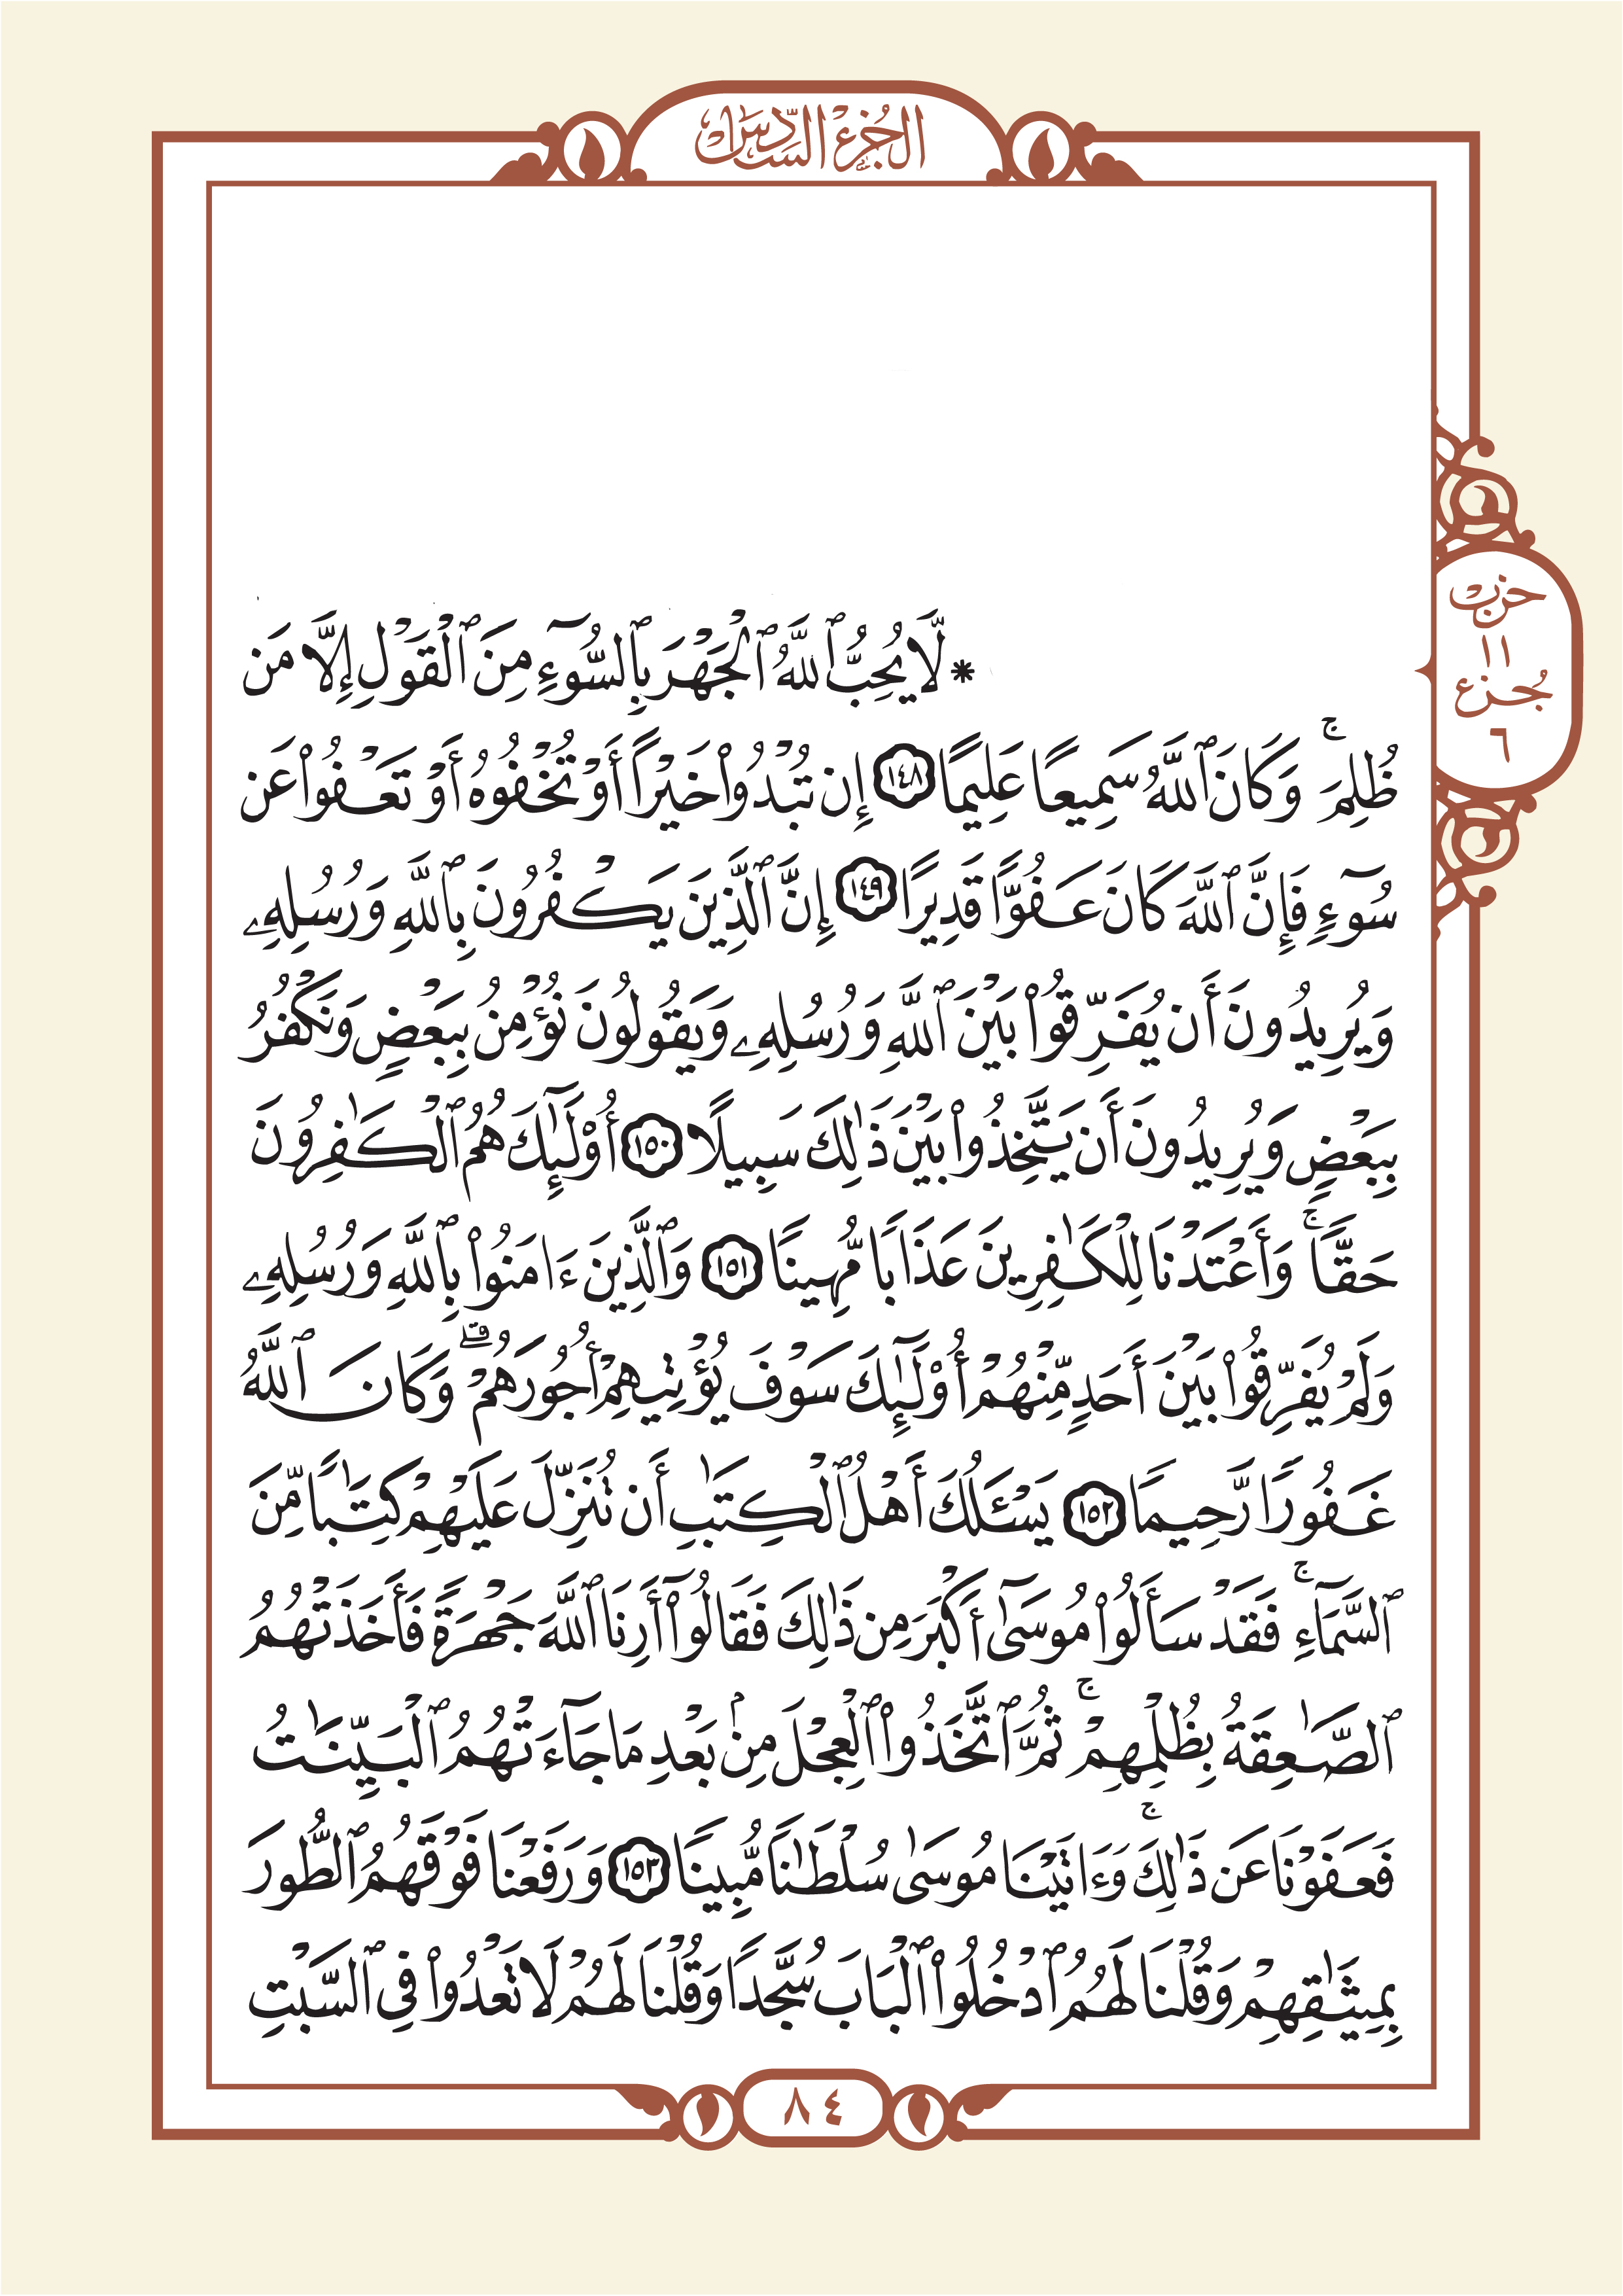 الجزء السادس
* لَّا يُحِبُّ ٱللَّهُ ٱلْجَهْرَ بِٱلسُّوٓءِ مِنَ ٱلْقَوْلِ إِلَّا مَن
ظُلِمَ ۚ وَكَانَ ٱللَّهُ سَمِيعًا عَلِيمًا ١٤٨ إِن تُبْدُوا۟ خَيْرًا أَوْ تُخْفُوهُ أَوْ تَعْفُوا۟ عَن
سُوٓءٍ فَإِنَّ ٱللَّهَ كَانَ عَفُوًّا قَدِيرًا ١٤٩ إِنَّ ٱلَّذِينَ يَكْفُرُونَ بِٱللَّهِ وَرُسُلِهِۦ
وَيُرِيدُونَ أَن يُفَرِّقُوا۟ بَيْنَ ٱللَّهِ وَرُسُلِهِۦ وَيَقُولُونَ نُؤْمِنُ بِبَعْضٍ وَنَكْفُرُ
بِبَعْضٍ وَيُرِيدُونَ أَن يَتَّخِذُوا۟ بَيْنَ ذَٰلِكَ سَبِيلًا ١٥٠ أُو۟لَـٰٓئِكَ هُمُ ٱلْكَـٰفِرُونَ
حَقًّا ۚ وَأَعْتَدْنَا لِلْكَـٰفِرِينَ عَذَابًا مُّهِينًا ١٥١ وَٱلَّذِينَ ءَامَنُوا۟ بِٱللَّهِ وَرُسُلِهِۦ
وَلَمْ يُفَرِّقُوا۟ بَيْنَ أَحَدٍ مِّنْهُمْ أُو۟لَـٰٓئِكَ سَوْفَ يُؤْتِيهِمْ أُجُورَهُمْ ۗ وَكَانَ ٱللَّهُ
غَفُورًا رَّحِيمًا ١٥٢ يَسْـَٔلُكَ أَهْلُ ٱلْكِتَـٰبِ أَن تُنَزِّلَ عَلَيْهِمْ كِتَـٰبًا مِّنَ
ٱلسَّمَآءِ ۚ فَقَدْ سَأَلُوا۟ مُوسَىٰٓ أَكْبَرَ مِن ذَٰلِكَ فَقَالُوٓا۟ أَرِنَا ٱللَّهَ جَهْرَةً فَأَخَذَتْهُمُ
ٱلصَّـٰعِقَةُ بِظُلْمِهِمْ ۚ ثُمَّ ٱتَّخَذُوا۟ ٱلْعِجْلَ مِنۢ بَعْدِ مَا جَآءَتْهُمُ ٱلْبَيِّنَـٰتُ
فَعَفَوْنَا عَن ذَٰلِكَ ۚ وَءَاتَيْنَا مُوسَىٰ سُلْطَـٰنًا مُّبِينًا ١٥٣ وَرَفَعْنَا فَوْقَهُمُ ٱلطُّورَ
بِمِيثَـٰقِهِمْ وَقُلْنَا لَهُمُ ٱدْخُلُوا۟ ٱلْبَابَ سُجَّدًا وَقُلْنَا لَهُمْ لَا تَعْدُوا۟ فِى ٱلسَّبْتِ
حزب
١١
جزء
٦
٨٤